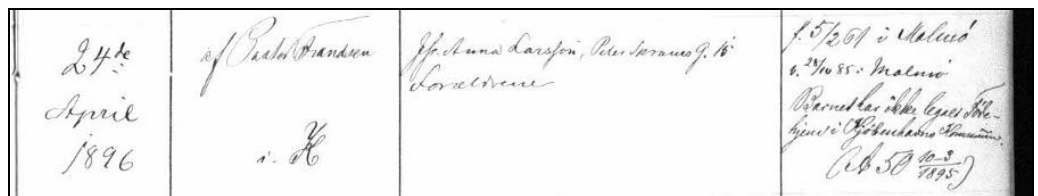 24de
April
1896
af Pastor Frandsen
i. K
Jfr. Anna Larsson, Peter Skrams G. 15
Forældrene
f. 5/2 61 i Malmö
v. 28/10 85 i Malmö
Barnet har ikke legalt Føde-
hjem i Kjøbenhavns Kommune.
(A 50 10-3/1895)